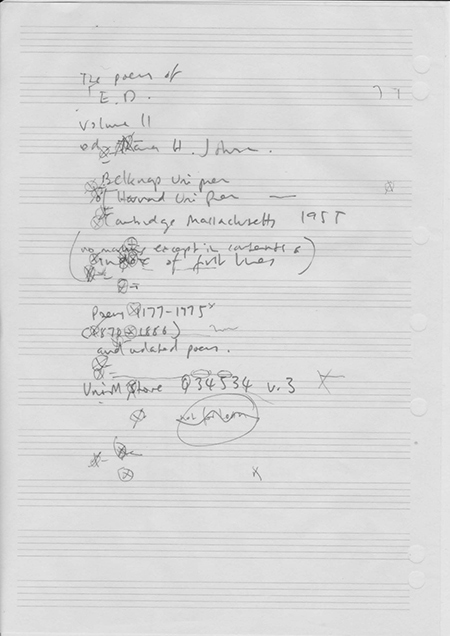 The poems of
E.D.
volume II
ed. H. Johnson.
Belknap Uni press
of Harvard Uni Press
Cambridge Massachusetts 1955
(no markings except in contents &
index of first lines)
Poems 1177-1775
(1870-1886)
and undated poems.
UniM Store 834534 v.3
not for loan